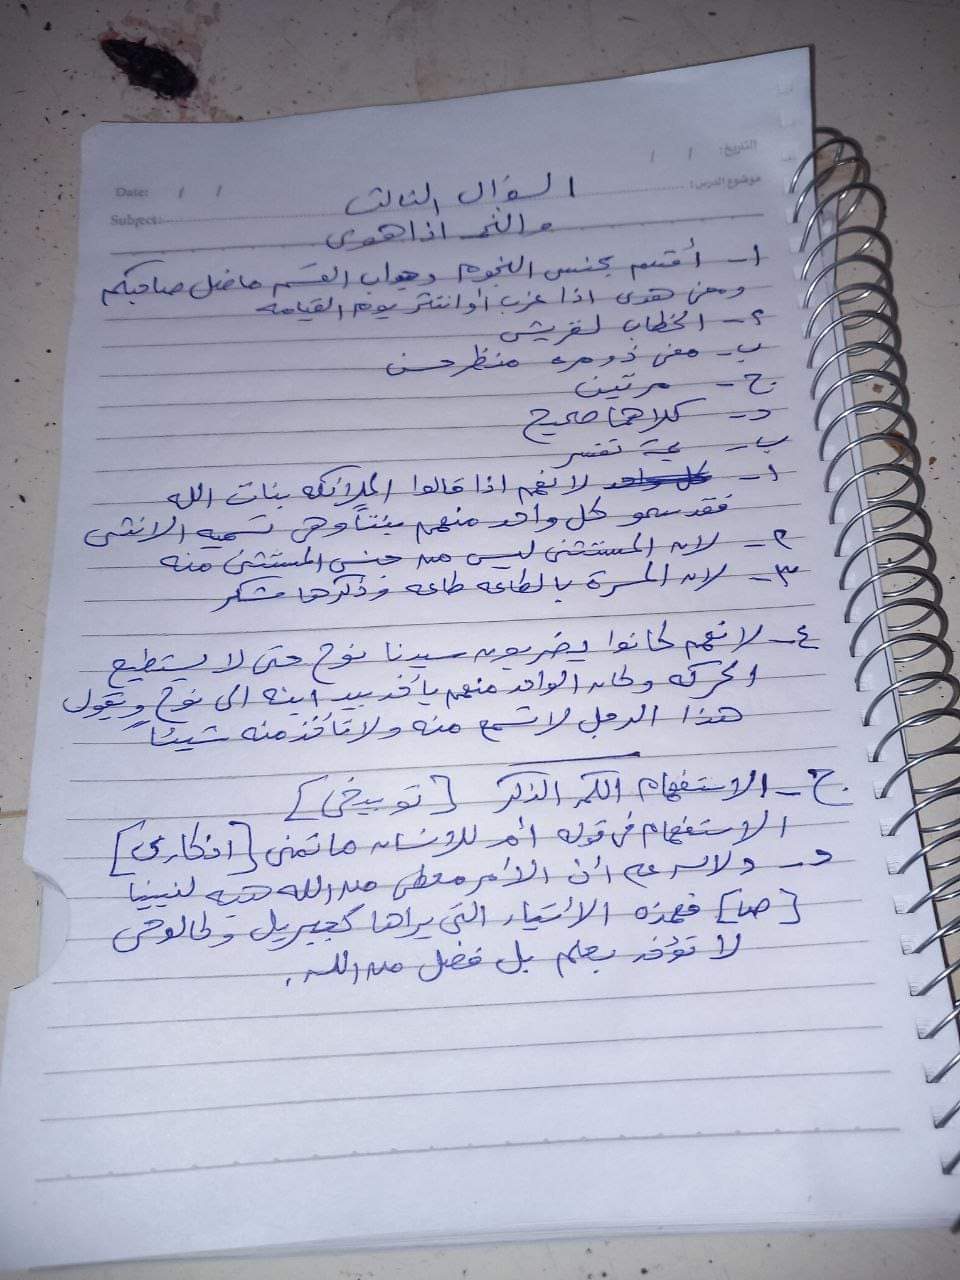 التاريخ: / /
Date: / /
موضوع الدرس:
Subject:
السؤال الثالث
والنجم اذا هوى
١- أقسم بجنس النجوم وجواب القسم ما ضل صاحبكم
ومعنى هوى اذا غرب أو انتثر يوم القيامه
٢- الخطاب لقريش
ب- معنى ذو مره منظر حسن
ج- مرتين
د- كلاهما صحيح
ب- تفسر
١- لانهم اذا قالوا الملائكه بنات الله
فقد سمو كل واحد منهم بنتاً وهي تسميه الانثى
٢- لان المستثنى ليس من جنس المستثنى منه
٣- لان المسرة بالطاعه طاعه وذكرها شكر
٤- لانهم كانوا يضربون سيدنا نوح حتى لا يستطيع
الحركه وكان الواحد منهم يأخذ بيد ابنه الى نوح ويقول
هذا الرجل لا تسمع منه ولا تأخذ منه شيئاً
ج- الاستفهام الكم الذكر [توبيخي]
الاستفهام في قوله أم للانسان ما تمنى [انكاري]
د- أن الأمر معطى من الله هبه لنبينا
[ص] فهذه الأشياء التي يراها كجبريل وكالوحي
لا تؤخذ بعلم بل فضل من الله.